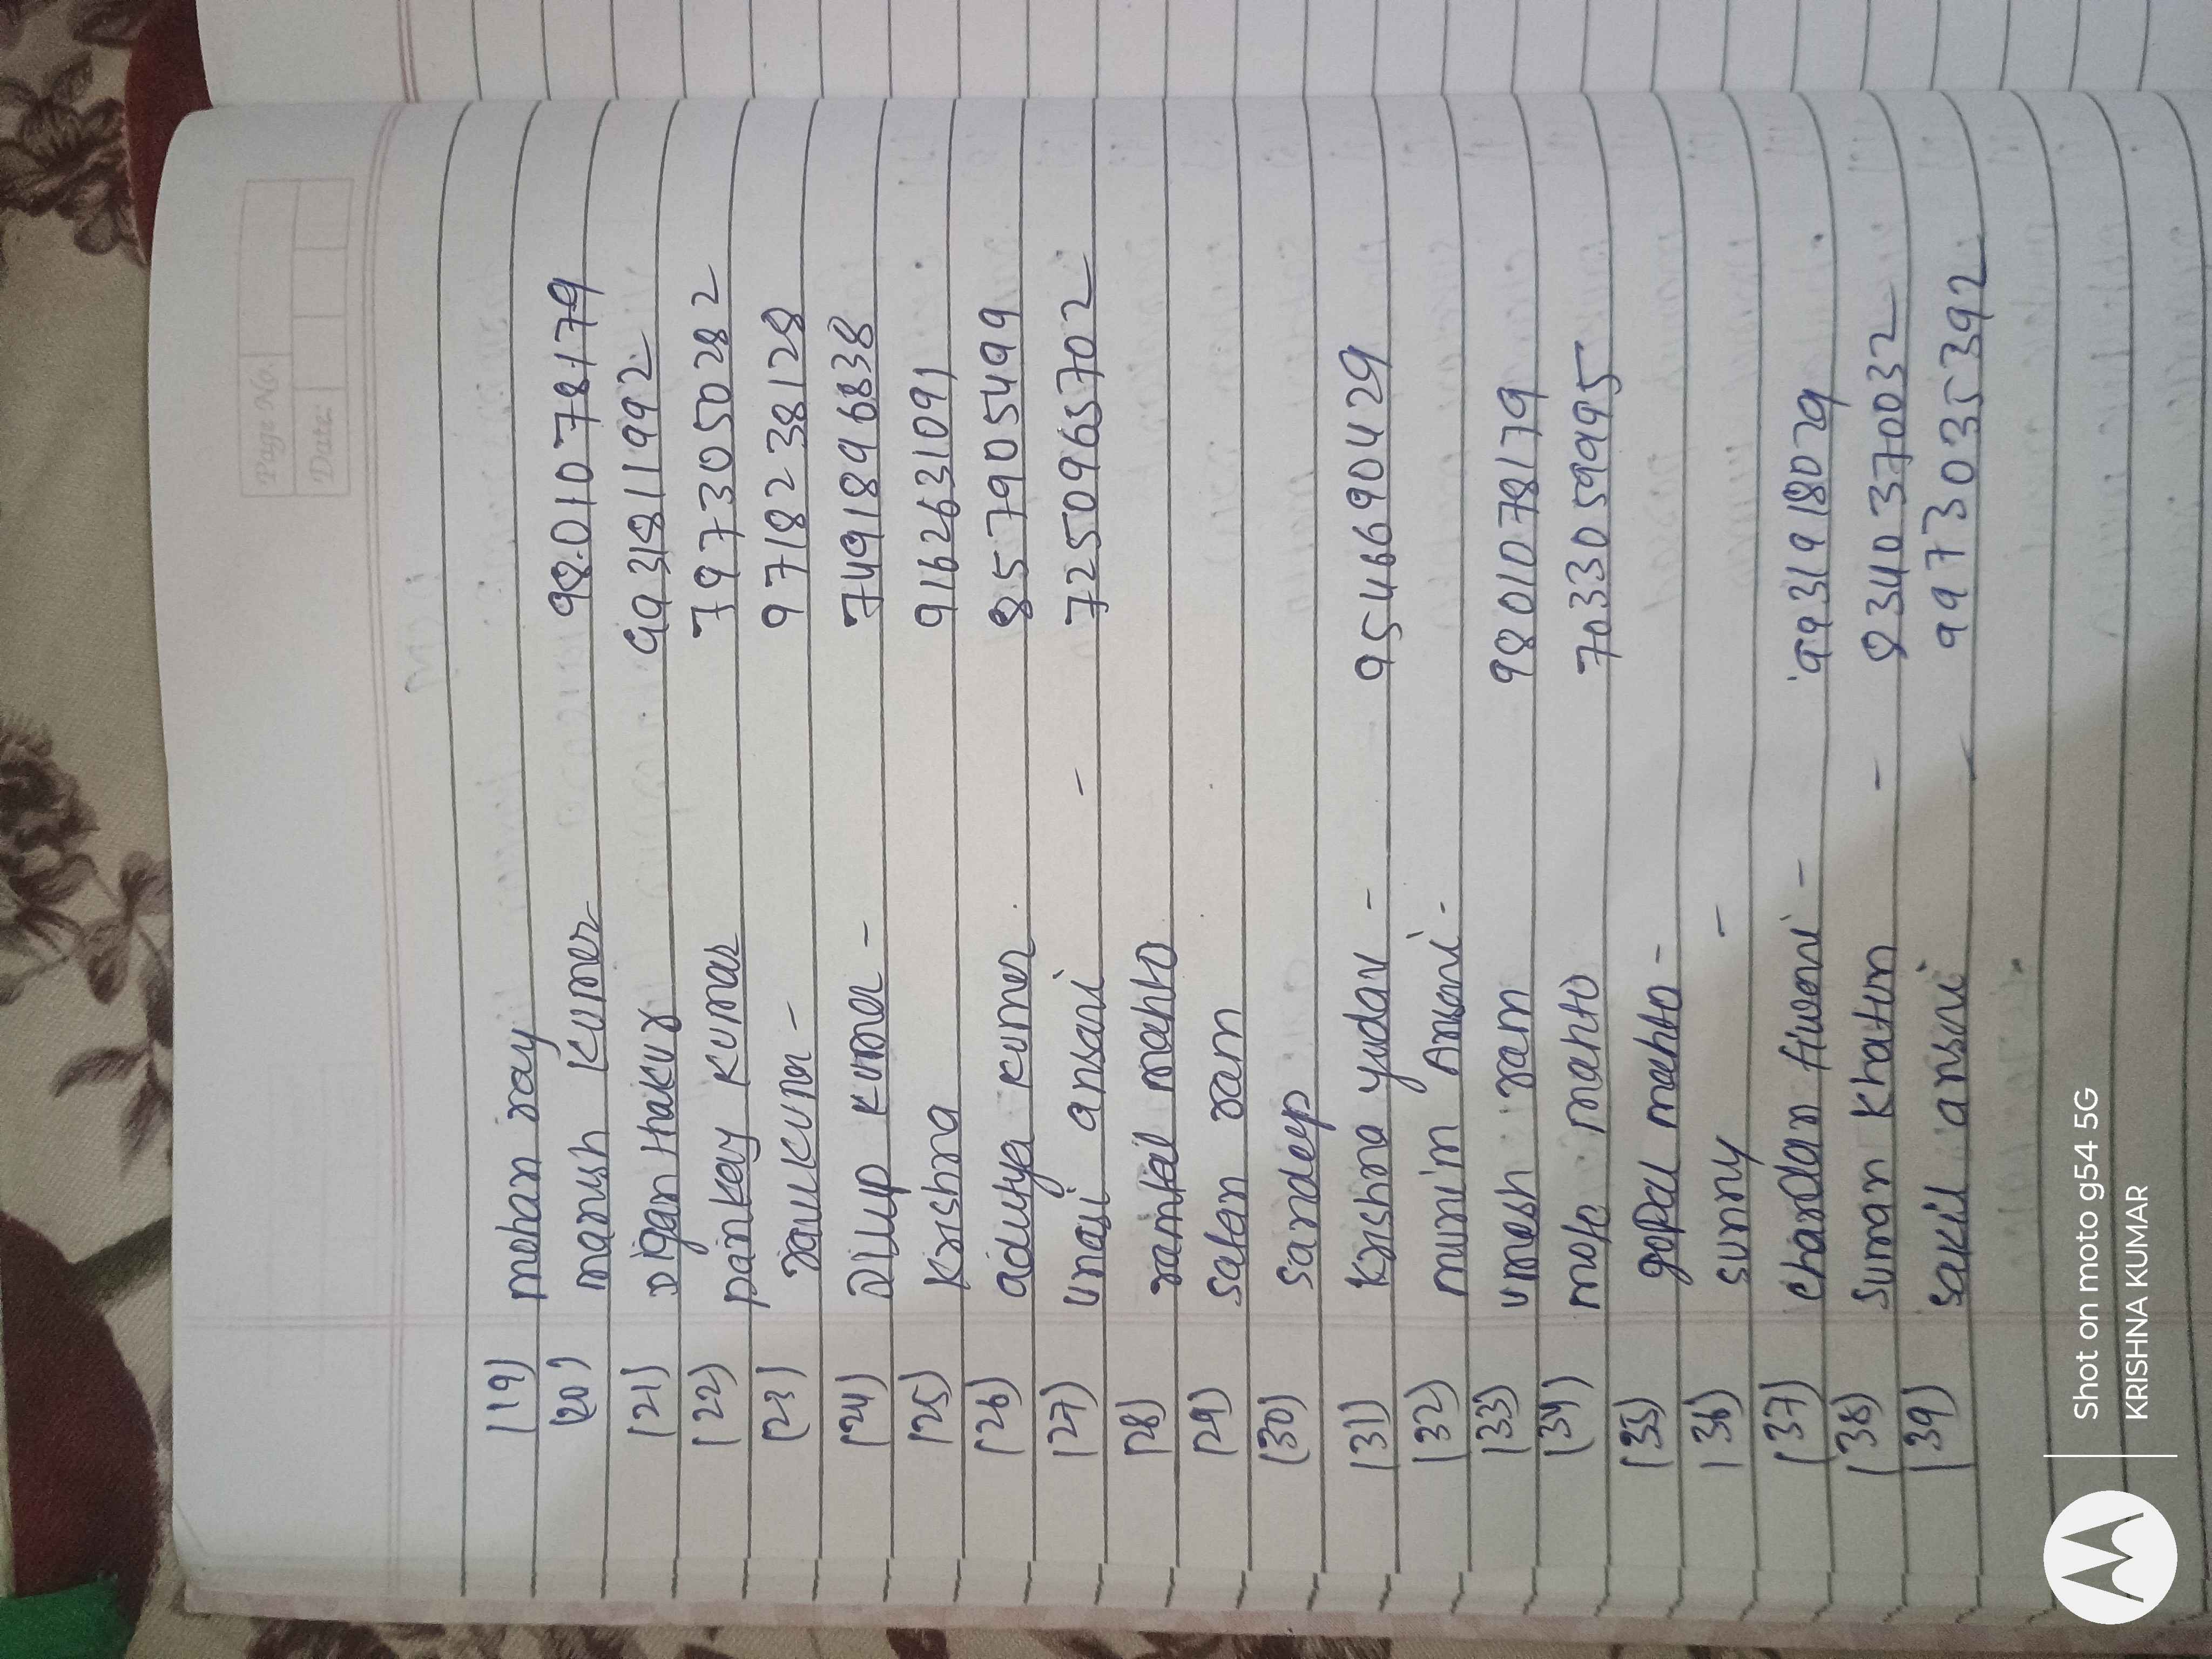 Page No.
Date
(19) mohan ray
(20) manish kumar 9801078179
(21) Digan thakur 9931811992
(22) pankaj kumar 7973050282
(23) raullkumar - 9718238128
(24) Dilip kumar - 7491896838
(25) Krishna 9162631091
(26) aditya kumar 8579905499
(27) unaji ansari - 7250965702
(28) ramlal mahto
(29) satan ram
(30) sandeep
(31) Krishna yadav - 9546690429
(32) munim Ansari -
(33) umesh ram 9801078179
(34) mahto 7033059995
(35) gopal mahto -
(36) sunny -
(37) chandan tiwari - 9931918029
(38) suman khatun - 8340370032
(39) sakil ansari - 9973035392
Shot on moto g54 5G
KRISHNA KUMAR